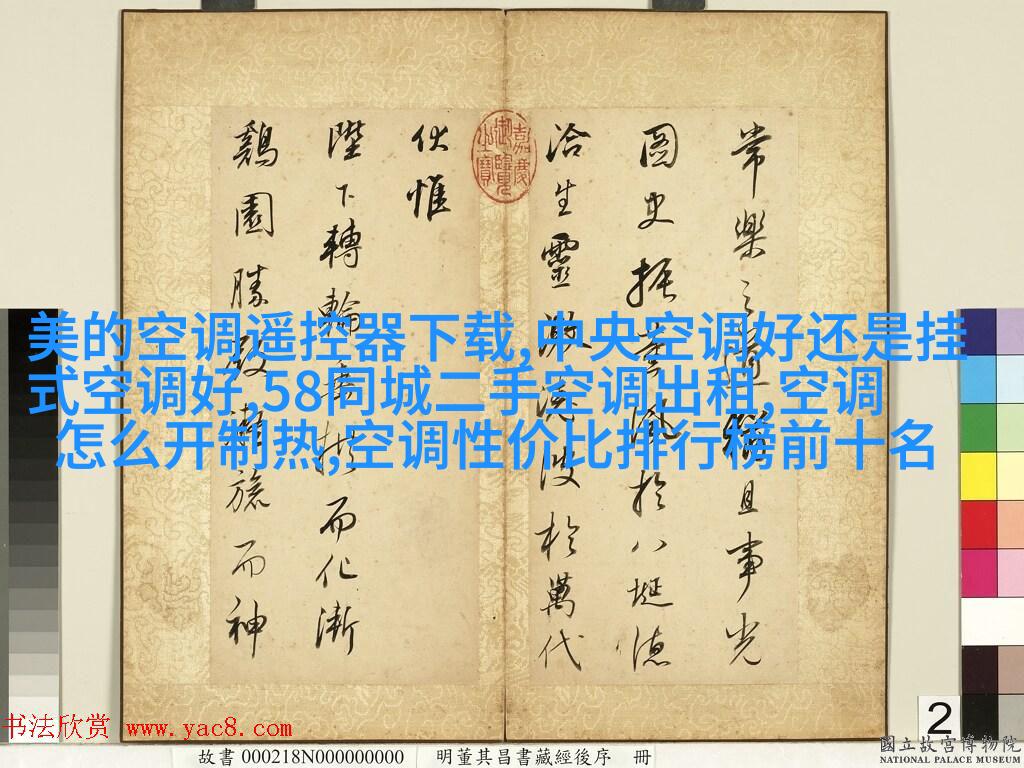 美的空调遥控器下载,中央空调好还是挂
式空调好,58同城二手空调出租,空调
怎么开制热,空调性价比排行榜前十名
常樂之且事光
圖史振風於八埏德
洽生靈激流波於萬代
伏惟
陛下轉輪垂拱而化漸
鷄園勝殿旒而神
嘉慶御覽之寶
2
书法欣赏 www.yac8.com
故書 000218N000000000 明董其昌書藏經後序 冊
國立故宮博物院
NATIONAL PALACE MUSEUM